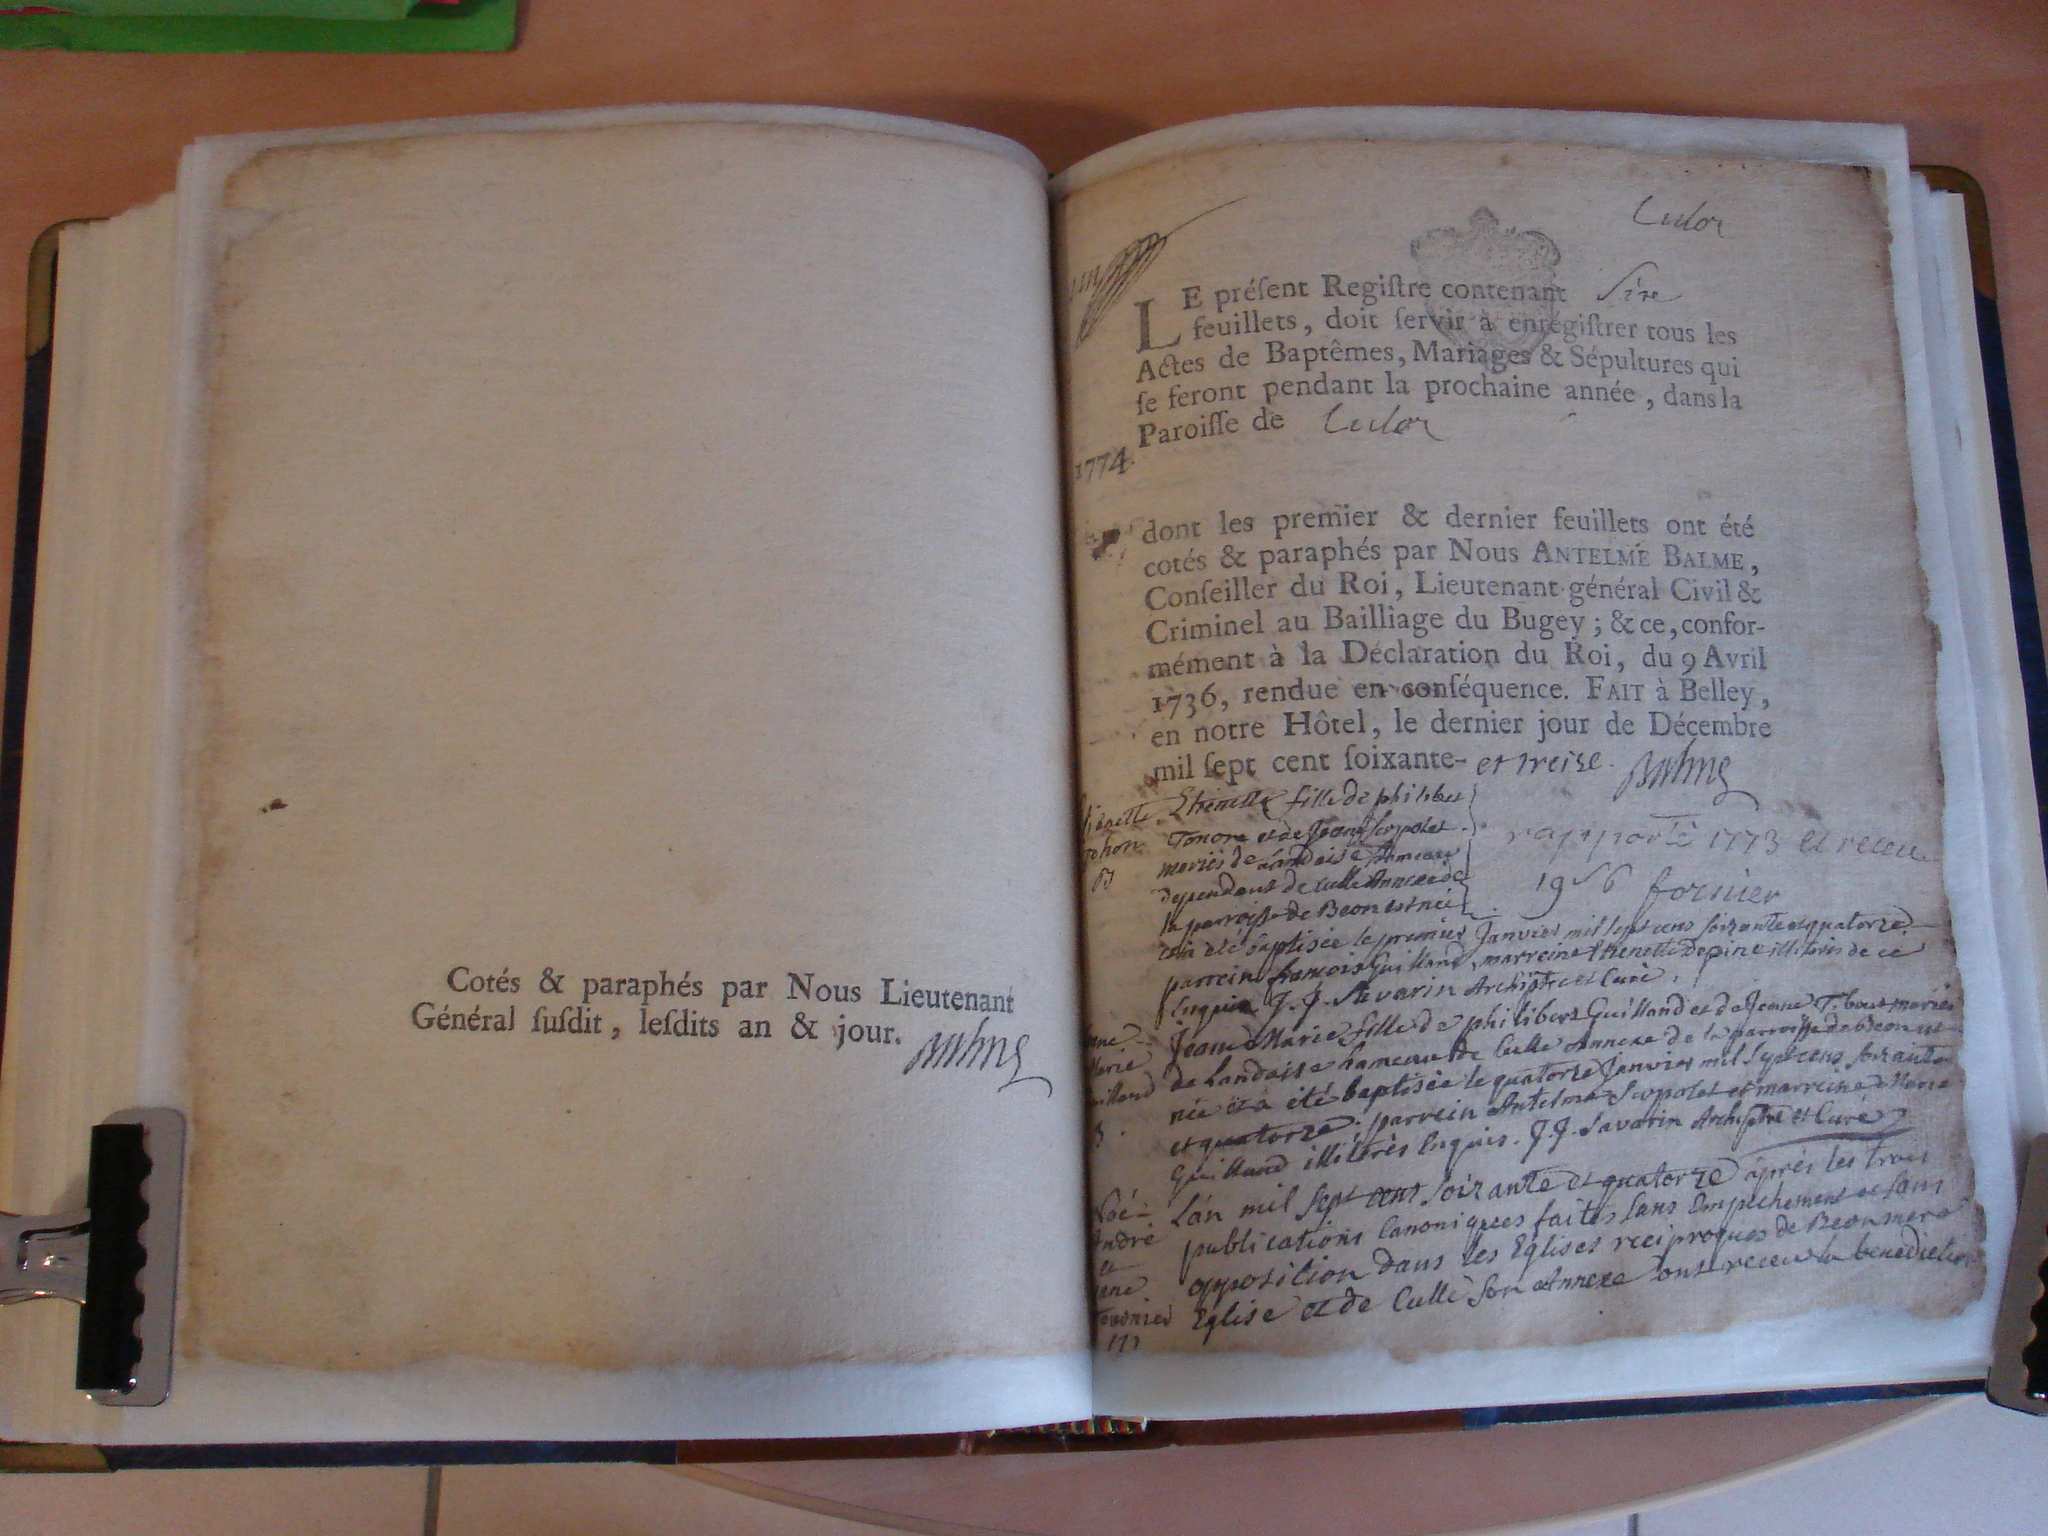 Cotés & paraphés par Nous Lieutenant
Général ſuſdit, leſdits an & jour.
Culoz
LE préſent Regiſtre contenant Sire
feuillets, doit ſervir à enregiſtrer tous les
Actes de Baptêmes, Mariages & Sépultures qui
ſe feront pendant la prochaine année, dans la
Paroiſſe de Culoz
1774.
dont les premier & dernier feuillets ont été
cotés & paraphés par Nous ANTELME BALME,
Conſeiller du Roi, Lieutenant-général Civil &
Criminel au Bailliage du Bugey; & ce, confor-
mément à la Déclaration du Roi, du 9 Avril
1736, rendue en conſéquence. FAIT à Belley,
en notre Hôtel, le dernier jour de Décembre
mil ſept cent ſoixante- et treize. Balme
Ethienette fille de philiber
et de Jeanne
mariés de Landaise hameau
dependant de Culle Annexe de
la parroisse de Beon est née
et a été baptisée le premier Janvier mil sept cens soixante et quatorze
parrein francois Guilland, marreine Ethenette Depine illiterés de ce
Enquis J. J. Savarin Archiptre et Curé.
rapporté 1773 et receu
19 s 6 fornier
Jeane Marie fille de philibert Guilland et de Jeanne mariés
de Landaise hameau de Culle Annexe de la parroisse de Beon est
née et a été baptisée le quatorze Janvier mil sept cens soixante
et quatorze. parrein Antelme et marreine Marie
Guilland illiterés Enquis. J. J. Savarin Archiptre et Curé
L'an mil sept cens soixante et quatorze après les trois
publications Canoniques faites sans Empechement et sans
opposition dans les Eglises reciproques de Beon mere
Eglise et de Culle son Annexe ont receu la benediction